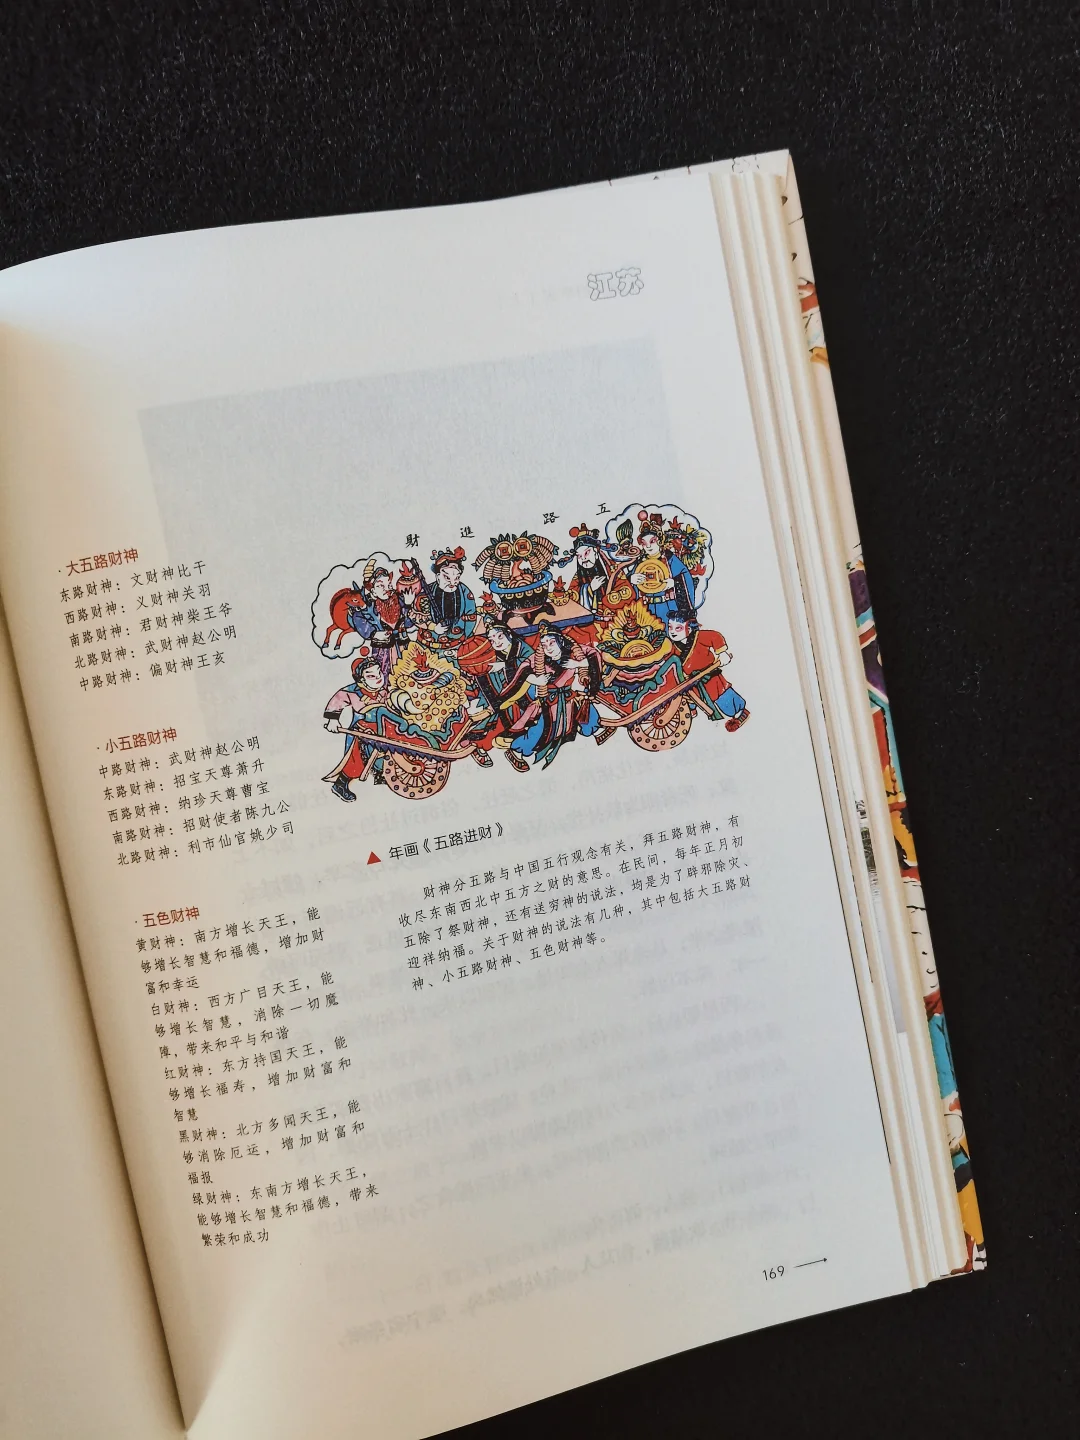 江苏
·大五路财神
东路财神：文财神比干
西路财神：义财神关羽
南路财神：君财神柴王爷
北路财神：武财神赵公明
中路财神：偏财神王亥
·小五路财神
中路财神：武财神赵公明
东路财神：招宝天尊萧升
西路财神：纳珍天尊曹宝
南路财神：招财使者陈九公
北路财神：利市仙官姚少司
·五色财神
黄财神：南方增长天王，能
够增长智慧和福德，增加财
富和幸运
白财神：西方广目天王，能
够增长智慧，消除一切魔
障，带来和平与和谐
红财神：东方持国天王，能
够增长福寿，增加财富和
智慧
黑财神：北方多闻天王，能
够消除厄运，增加财富和
福报
绿财神：东南方增长天王，
能够增长智慧和福德，带来
繁荣和成功
財進路五
▲年画《五路进财》
财神分五路与中国五行观念有关，拜五路财神，有
收尽东南西北中五方之财的意思。在民间，每年正月初
五除了祭财神，还有送穷神的说法，均是为了辟邪除灾、
迎祥纳福。关于财神的说法有几种，其中包括大五路财
神、小五路财神、五色财神等。
169